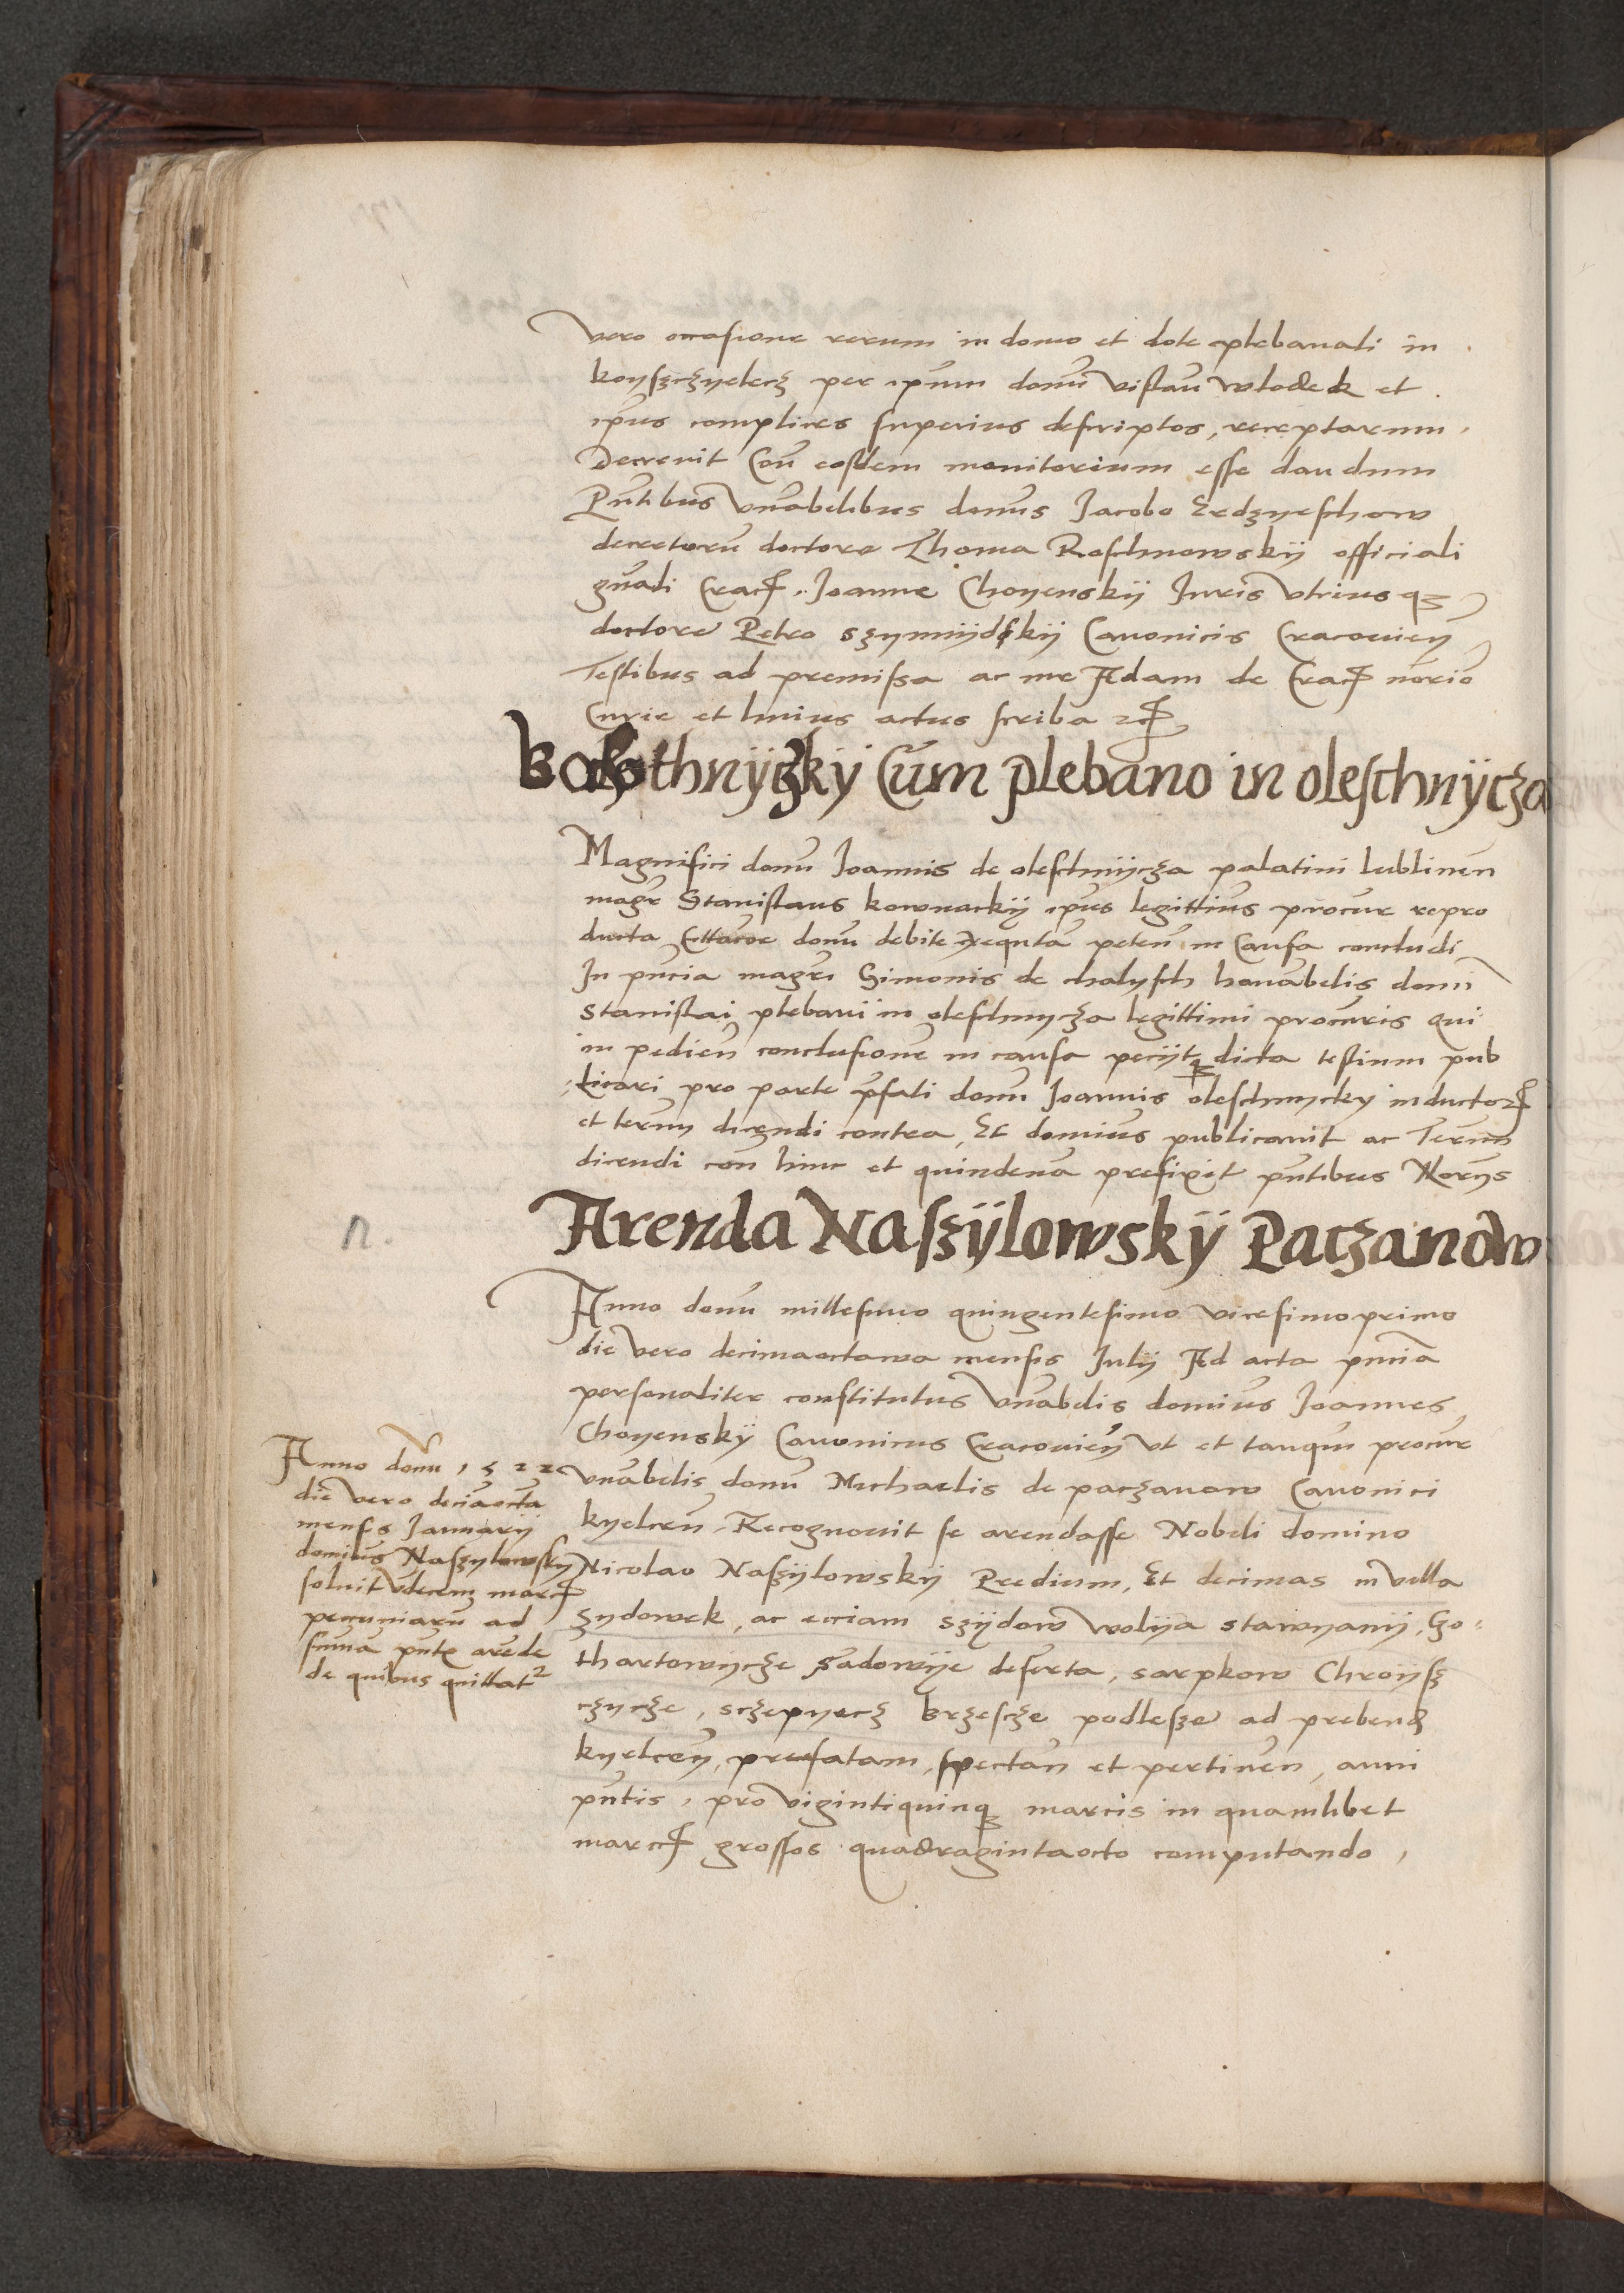 vero occasione rerum in domo et dote plebanali in
koyschzyelecz per ip̄um domū vislaū wlodek et
ip̄ius complices superius descriptos, receptarum.
Decrevit Coñ eosdem monitorium esse dandum
Pñtibus vñabelibus domīs Jacobo Erdzyeschow
decretorū doctore Thoma Roschnowskÿ officiali
gñali Crac, Joanne Choyenskÿ Juris vtriusq3
doctore Petro szymÿdskÿ Canonicis Cracovieñ
Testibus ad premissa ac me Adam de Crac nōrio
Curie et huius actus scriba
thnÿczkÿ Cum plebano in oleschnÿcza
Magnifici domī Joannis de oleschnÿcza palatini lublineñ
magr Stanislaus kownackÿ ip̄ius legittīus procur repro
ducta domū debite exequtā peteñ in Causa concludi
In pñcia magri Simonis de chalysch honabelis domī
stanislai plebani in oleschnycza legittimi procuris qui
in pedieñ conclusione in causa peciit dicta testium pub
licari pro parte p̄fati domī Joannis oleschnycky inductor
et termī dicendi contra, Et domīus publicavit ac Termū
dicendi coñ hinc et quindenā prefixit pñtibus Norÿs
Arenda Naszÿlowskÿ Paczanow
Anno domī millesimo quingentesimo vicesimoprimo
die vero decimaoctawa mensis Julÿ Ad acta pñcia
personaliter constitutus vñabelis domīus Joannes
Choyenskÿ Canonicus Cracovieñ vt et tanqm̄ procur
vñabelis domī Michaelis de paczanow Canonici
kyelceñ, Recognovit se arendasse Nobeli domino
Nicolao Naszÿlowskÿ Predium, Et decimas in villa
zydowek, ac eciam szÿdow wolÿa stawyanÿ, Go-
thartowycze sadowÿe deserta, sarpkow Chroÿsz
czycze, sczepyecz brzescze podlesze ad prebend
kyelceñ, prefatam, spectañ et pertineñ, anni
pñtis, pro vigintiquinq3 marcis in quamlibet
marc grossos quadragintaocto computando,
n.
Anno domī 1522
die vero deciaocta
mensis Januarÿ
domīus Naszylowsky
solvit vdecem marc
pecuniarū ad
sumā pñtis arēde
de quibus quittat